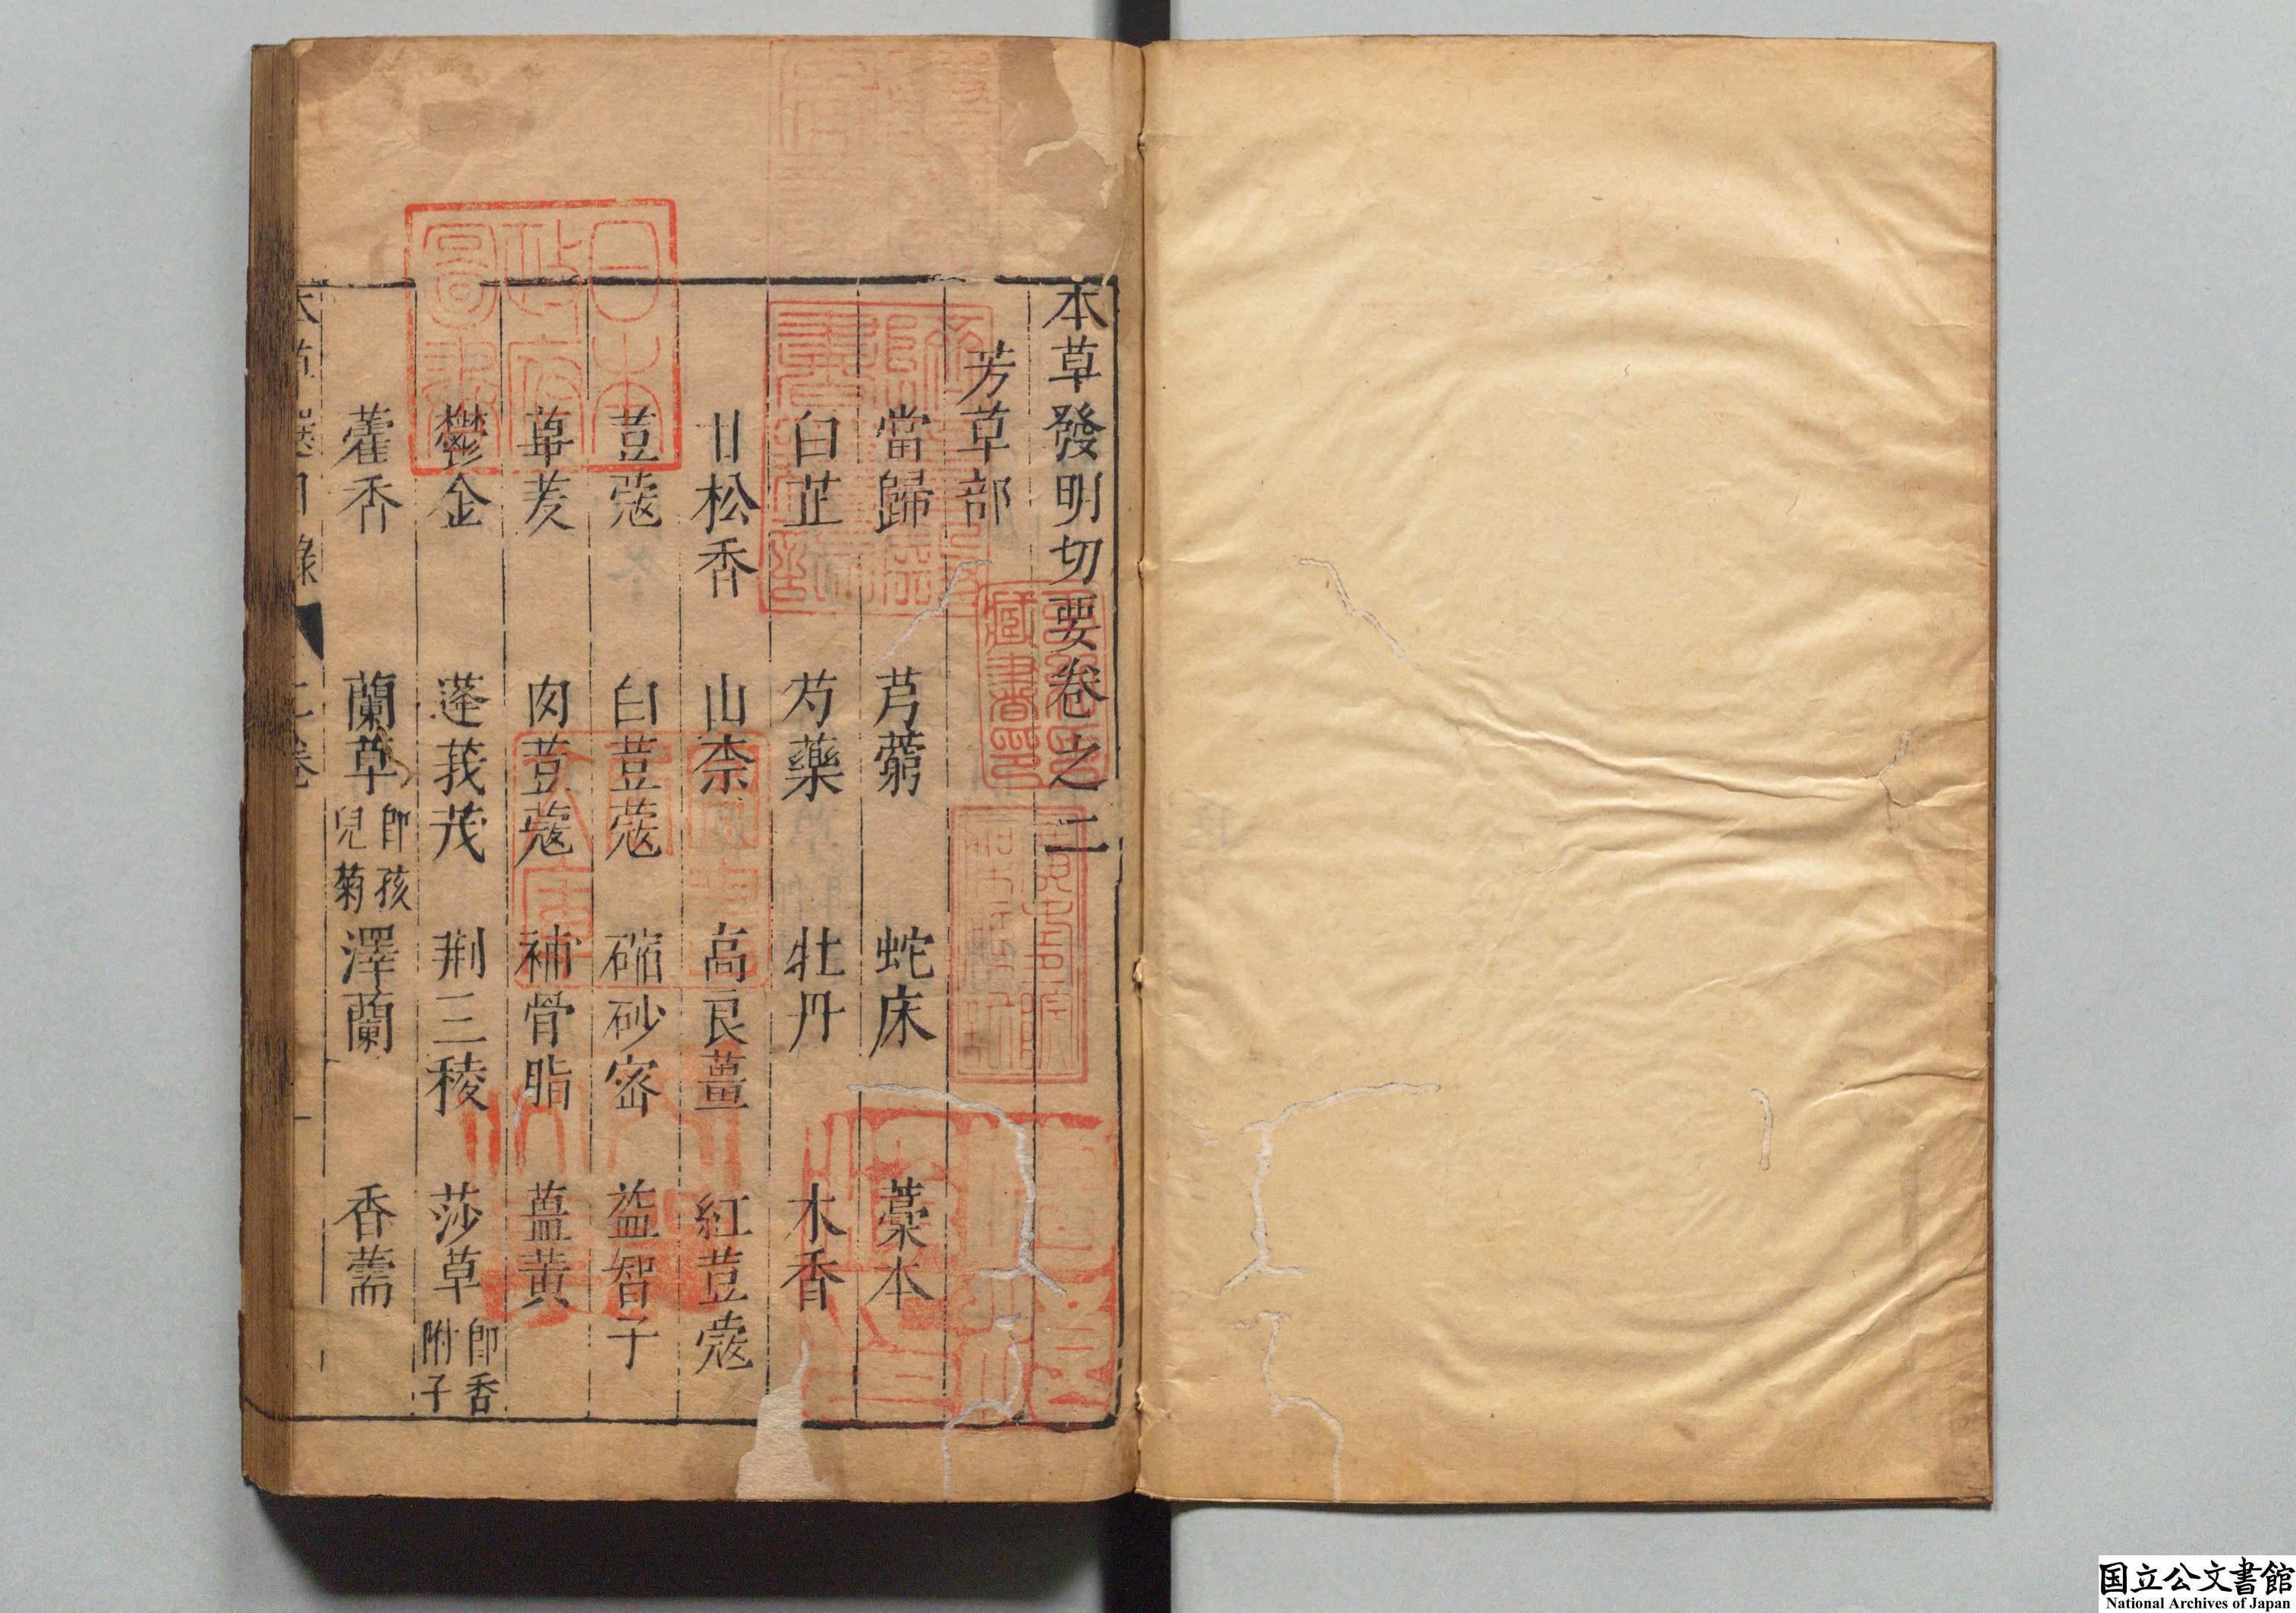 本草發明切要卷之二
芳草部
當歸 芎藭 蛇床 藁本
白芷 芍藥 牡丹 木香
甘松香 山柰 高良薑 紅荳蔻
荳蔻 白荳蔻 縮砂宻 益智子
蓽茇 肉荳蔻 補骨脂 薑黃
鬱金 蓬莪茂 荆三稜 莎草 卽香附子
藿香 蘭草 卽孩兒菊 澤蘭 香薷
日本政府圖書
国立公文書館
National Archives of Japan